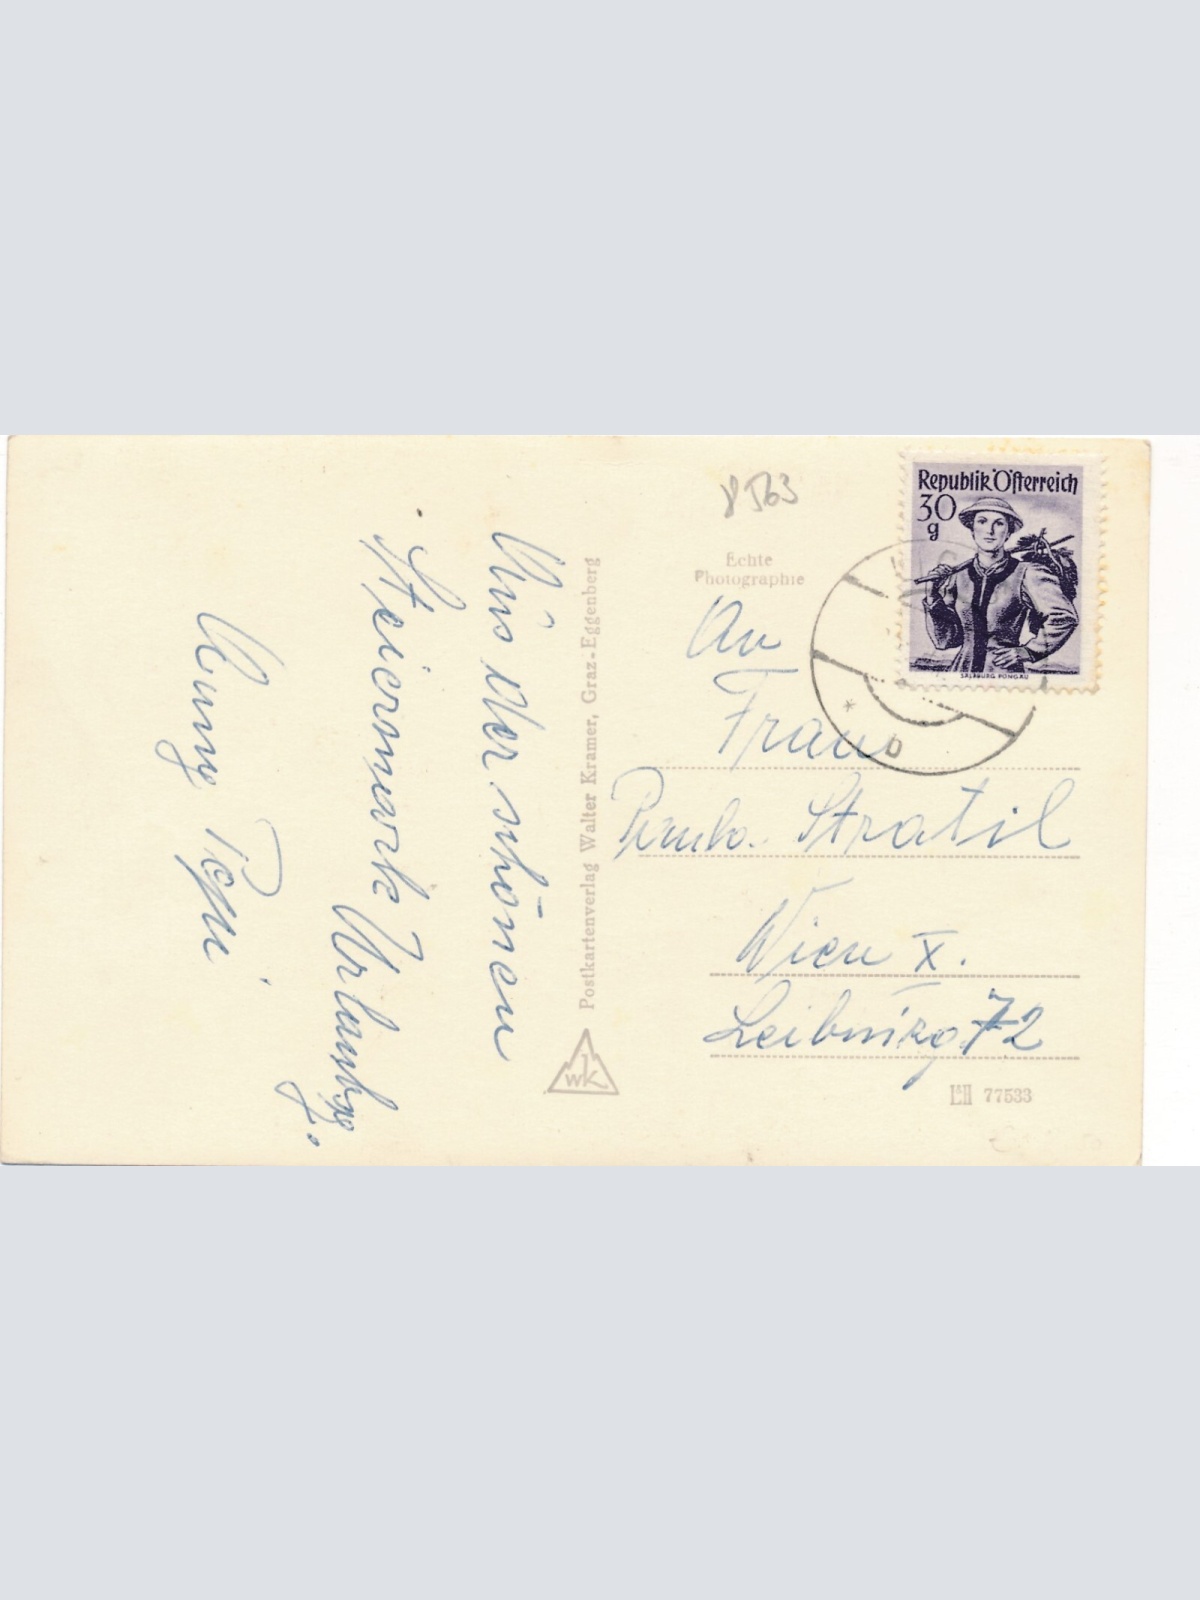 8563
Republik Österreich
30
g
SALZBURG PONGAU
Echte
Photographie
b
Aus der schönen
Steiermark Urlaubsg.
Postkartenverlag Walter Kramer, Graz-Eggenberg
wk
An
Frau
Stratil
Wien X.
Leibnizg. 72
L&H 77533